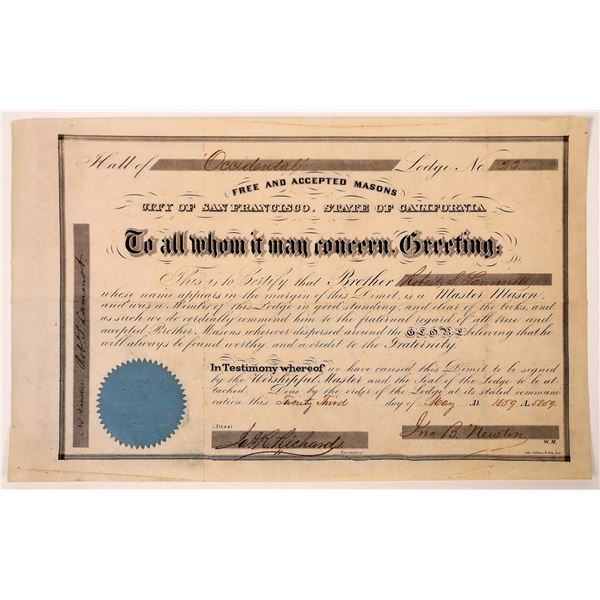 Hall of "Occidental" Lodge No. 22
FREE AND ACCEPTED MASONS
CITY OF SAN FRANCISCO, STATE OF CALIFORNIA
To all whom it may concern, Greeting:
This is to Certify that Brother Robert S. Lammot
whose name appears in the margin of this Demit, is a Master Mason,
and was a Member of this Lodge in good standing, and clear of the books, and
as such we do cordially commend him to the fraternal regard of all true and
accepted Brother Masons wherever dispersed around the GLOBE believing that he
will always be found worthy, and a credit to the Fraternity
In Testimony whereof we have caused this Demit to be signed
by the Worshipful Master and the Seal of the Lodge to be at-
tached. Done by the order of the Lodge at its stated commu-
cation this Twenty Third day of May A.D. 1859 A.L. 5859.
Attest
Richards Secretary
Jno B. Newton W.M.
Ne varietur Robt S. Lammot